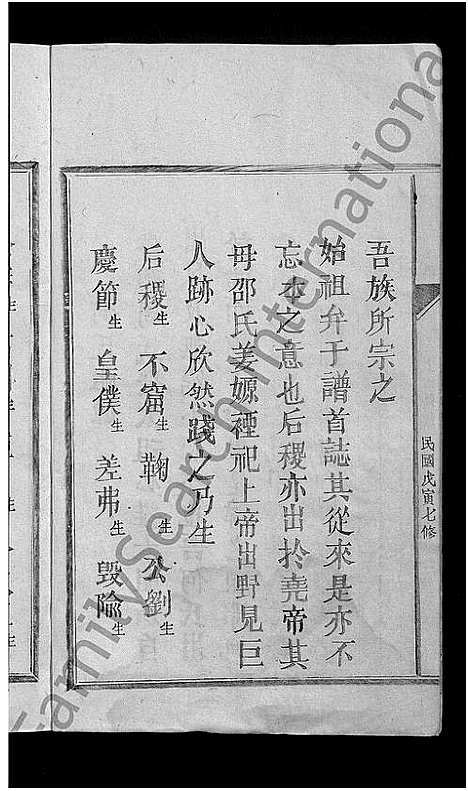 吾族所宗之
始祖弁于譜首誌其從來是亦不
忘本之意也后稷亦出於堯帝其
母邵氏姜嫄禋祀上帝出野見巨
人跡心欣然踐之乃生
后稷生 不窋生 鞠生 公劉生
慶節生 皇僕生 差弗生 毀隃生
民國戊寅七修
FamilySearch International